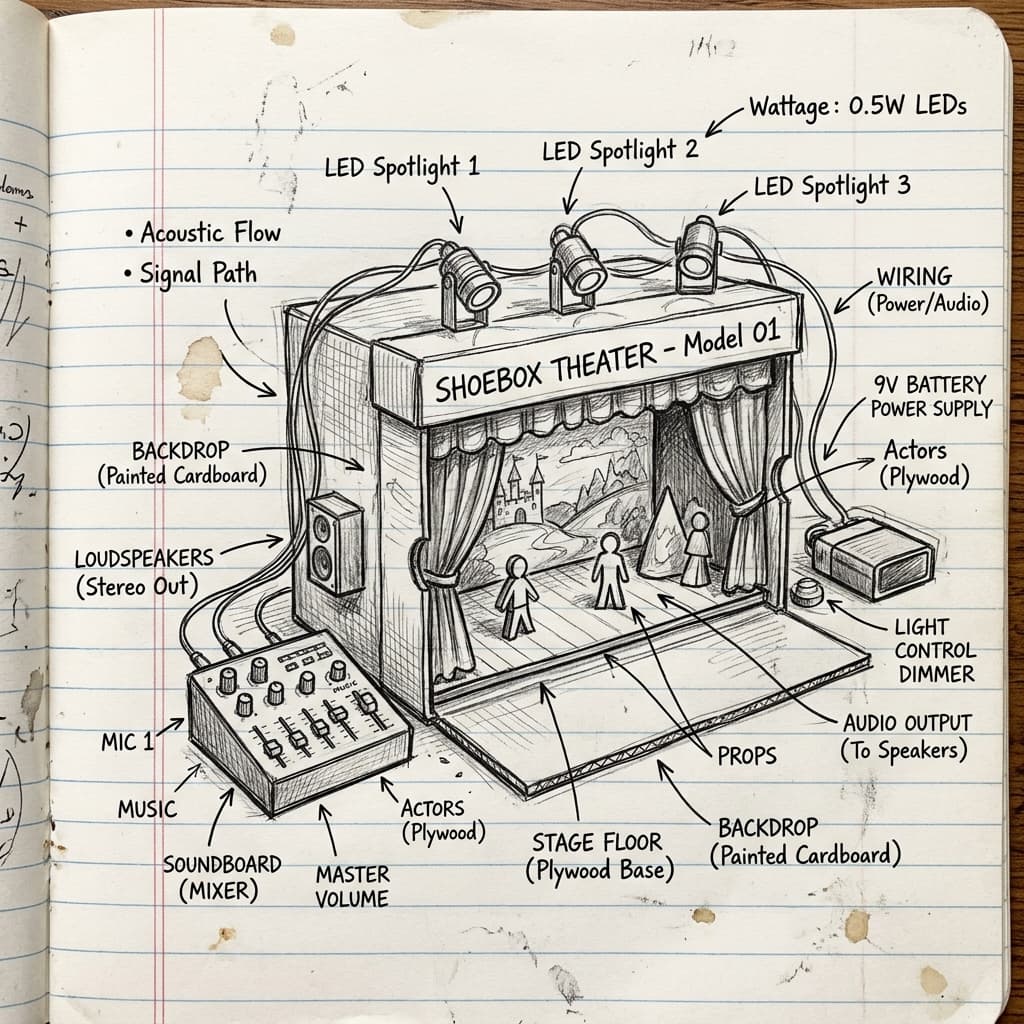 Wattage: 0.5W LEDs
LED Spotlight 1
LED Spotlight 2
LED Spotlight 3
• Acoustic Flow
• Signal Path
WIRING
(Power/Audio)
SHOEBOX THEATER - Model 01
9V BATTERY
POWER SUPPLY
BACKDROP
(Painted Cardboard)
Actors
(Plywood)
LOUDSPEAKERS
(Stereo Out)
LIGHT
CONTROL
DIMMER
MUSIC
MIC 1
AUDIO OUTPUT
(To Speakers)
PROPS
MUSIC
ACTORS
(Plywood)
STAGE FLOOR
(Plywood Base)
BACKDROP
(Painted Cardboard)
SOUNDBOARD
(MIXER)
MASTER
VOLUME